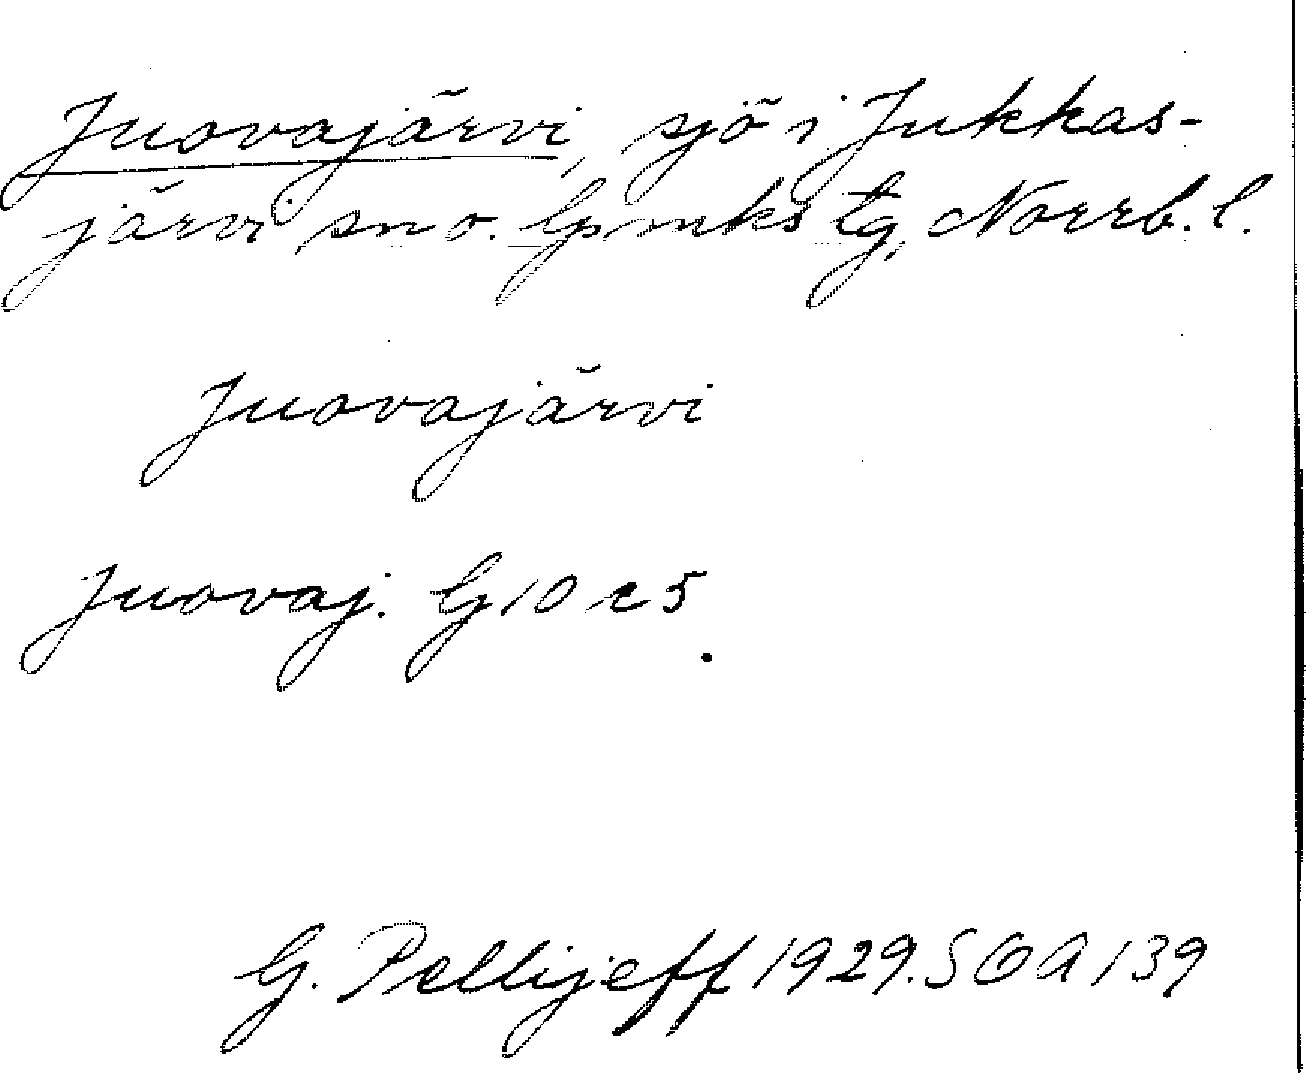 Juovajärvi, sjö i Jukkas-
järvi sn o. lpmks tg, Norrb. l.
Juovajärvi
Juovaj. G 10 c 5
G. Pellijeff 1929. SOA 139